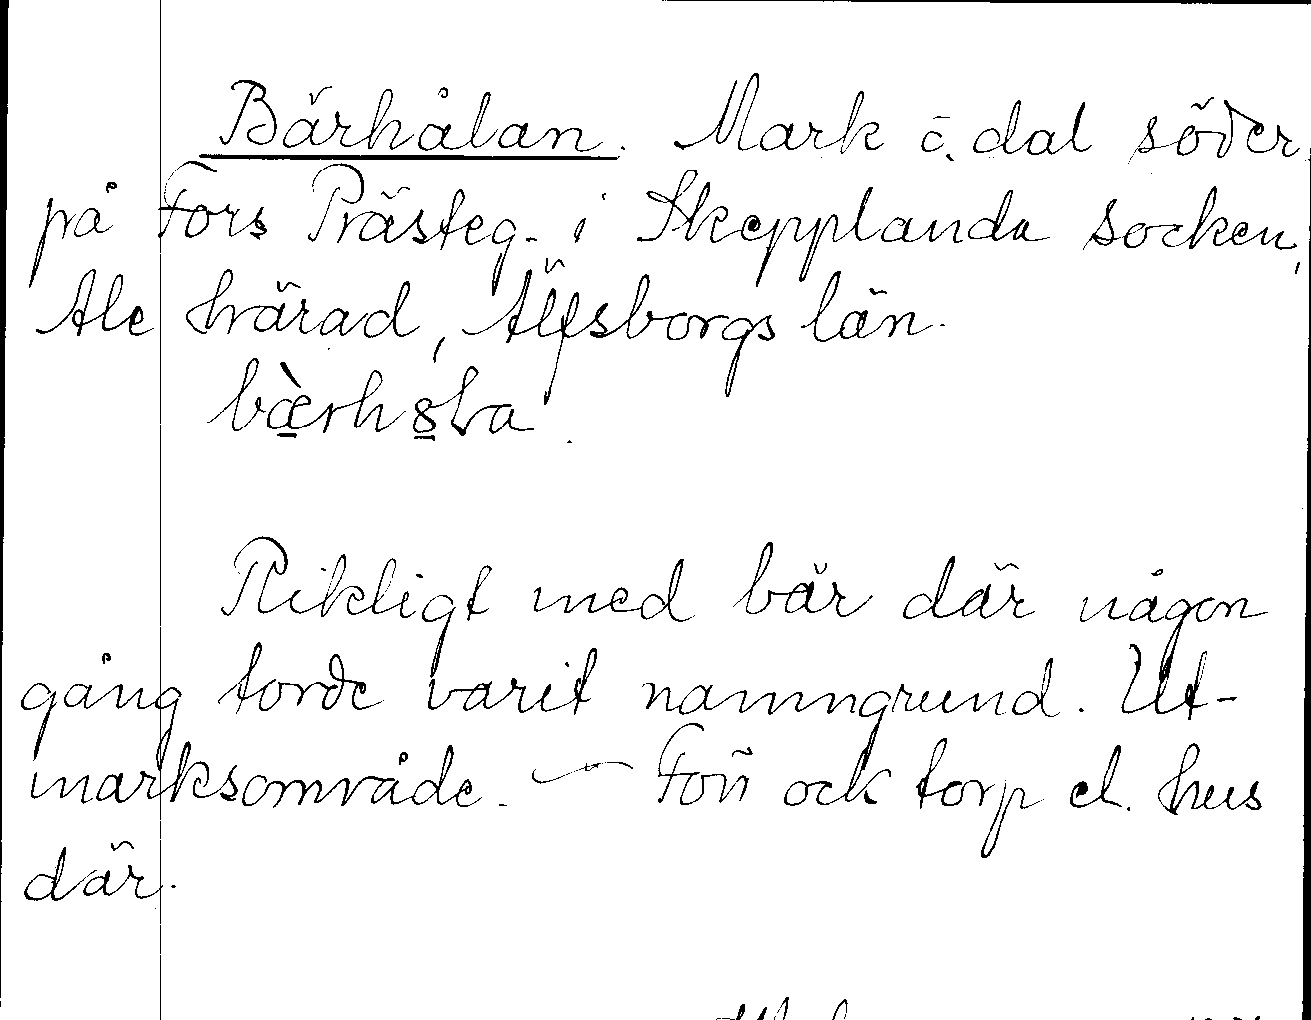 Bärhålan. Mark o. dal söder
på Fors Prästeg. i Skepplanda socken,
Ale härad, Älfsborgs län.
Rikligt med bär där någon
gång torde varit namngrund. Ut-
marksområde. — Förr ock torp el. hus
där.